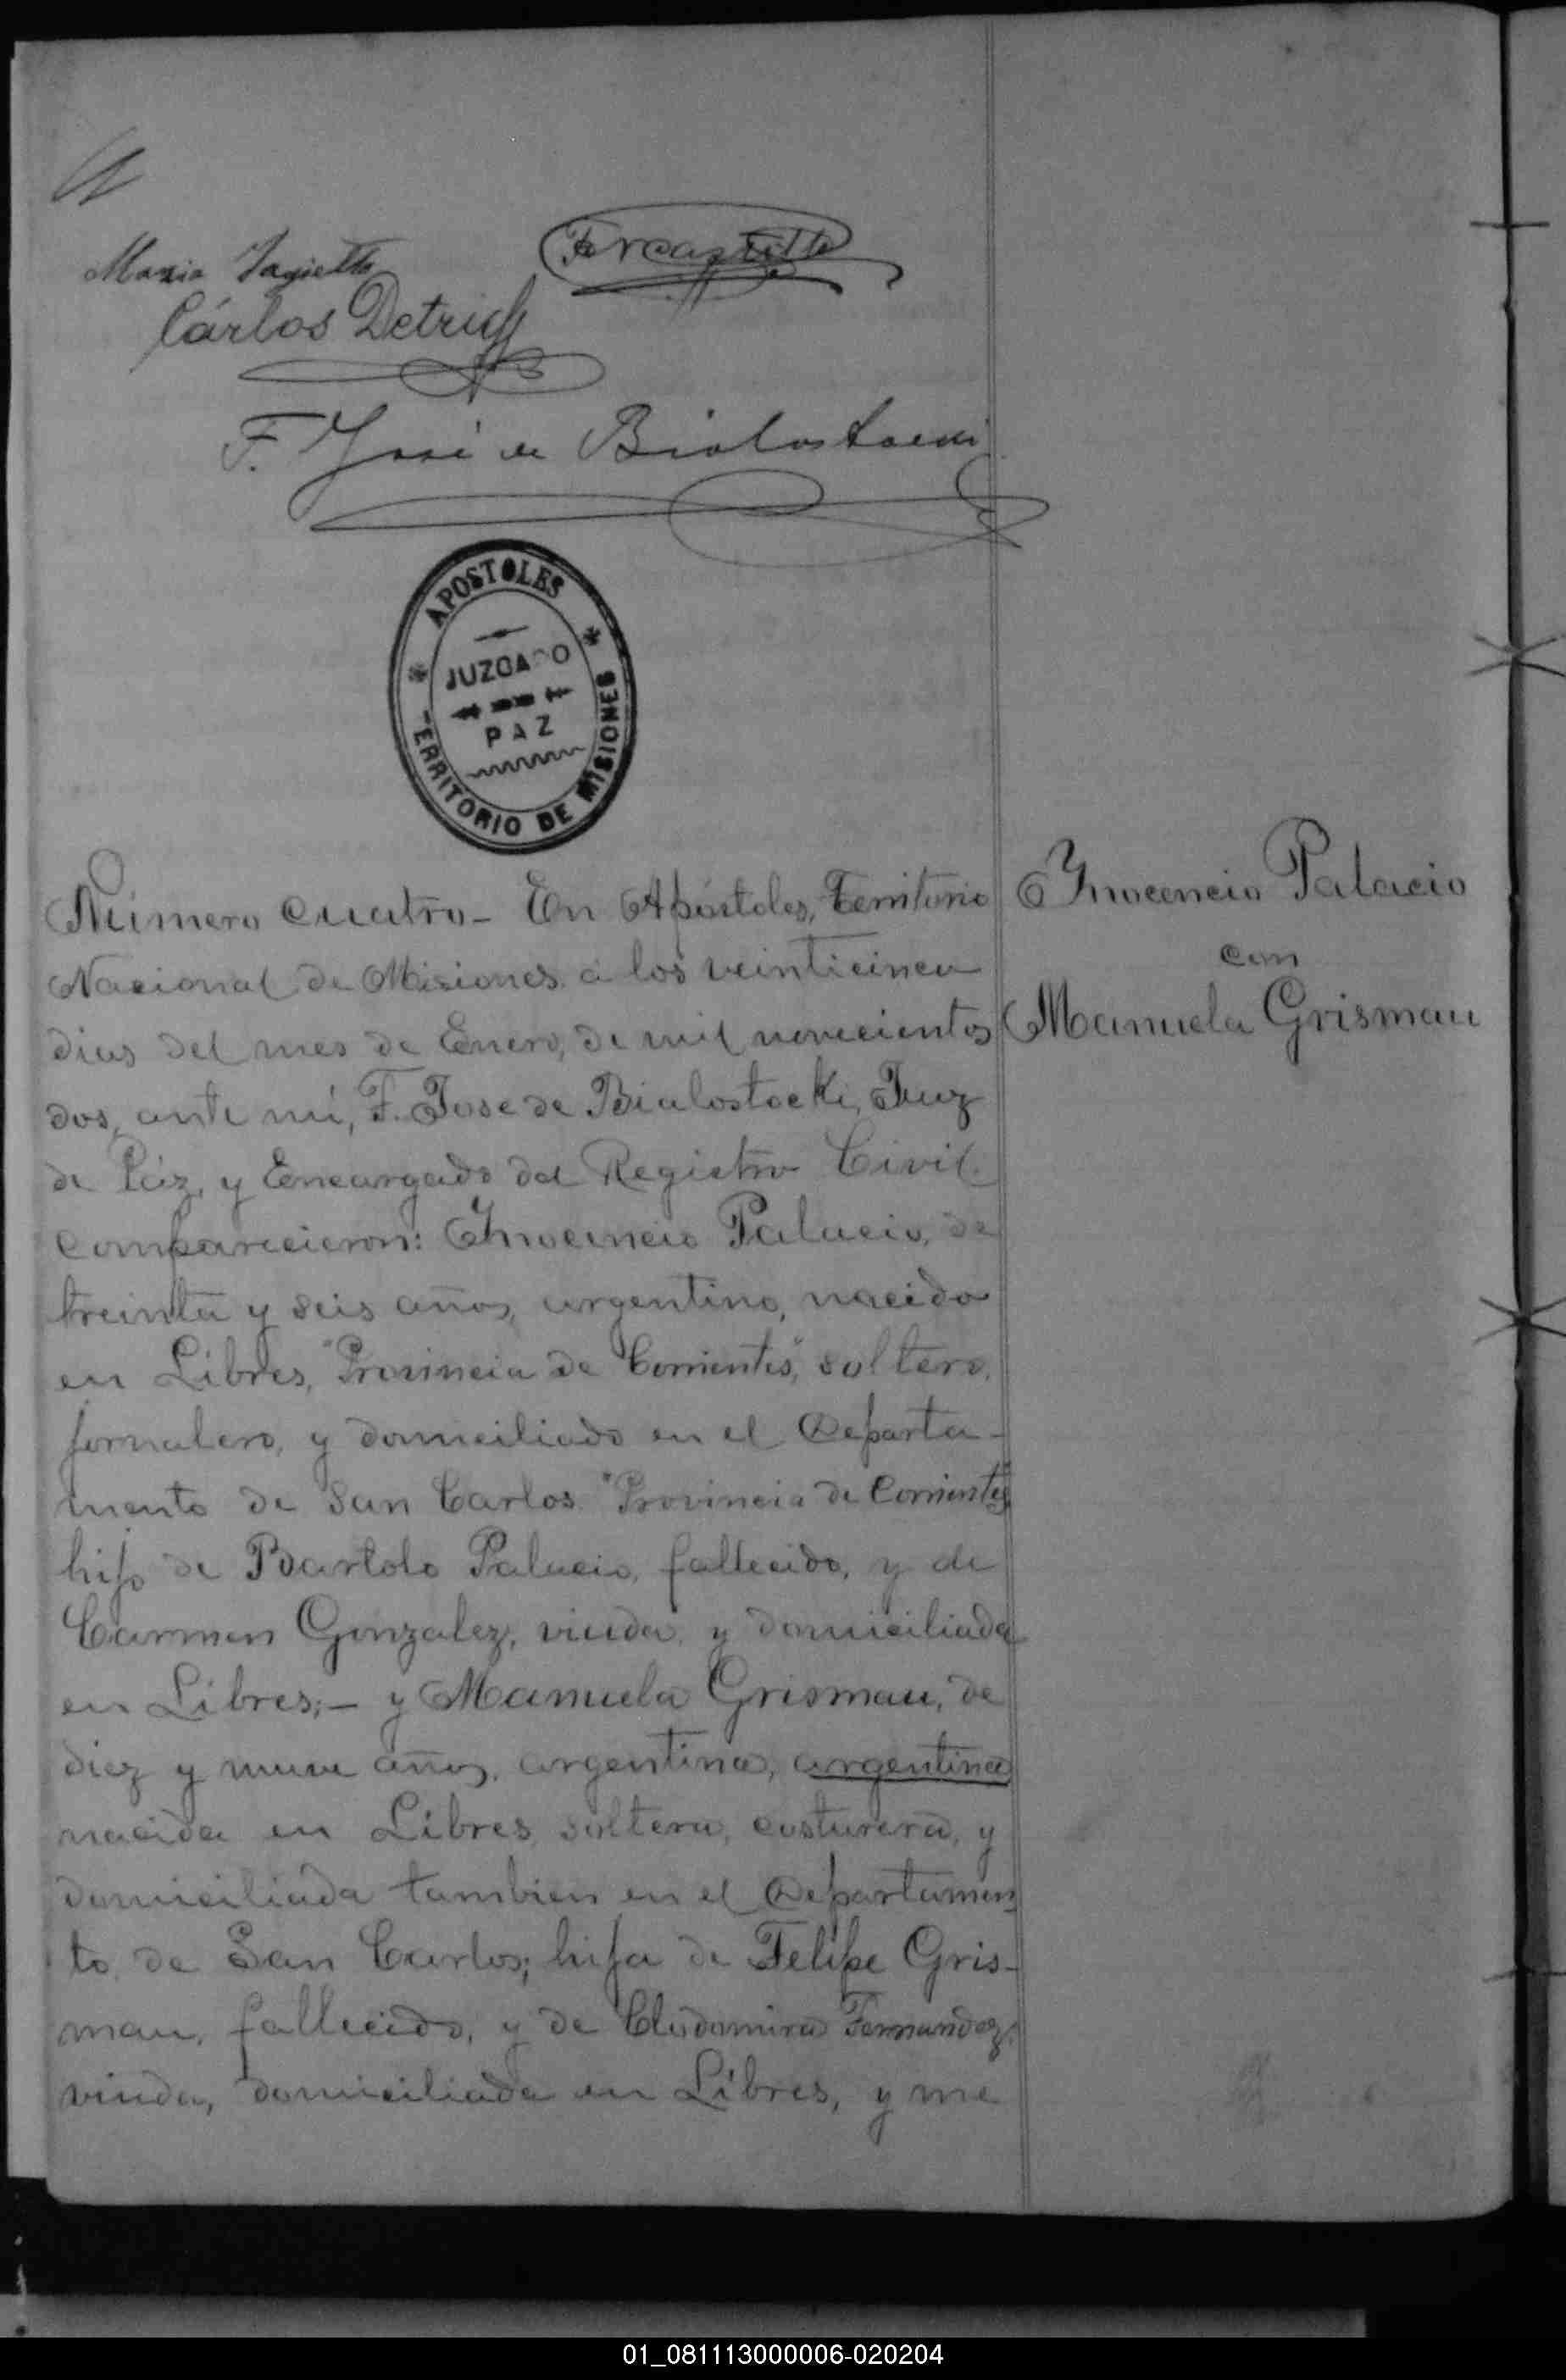 Cárlos Detrich
F. José de Bialostocki
APOSTOLES
JUZGADO
PAZ
TERRITORIO DE MISIONES
Número cuatro- En Apóstoles, Territorio
Nacional de Misiones á los veinticinco
dias del mes de Enero, de mil novecientos
dos, ante mí, F. Jose de Bialostocki, Juez
de Páz, y Encargado del Registro Civil
comparecieron: Inocencio Palacio, de
treinta y seis años, argentino, nacido
en Libres, "Provincia de Corrientes", soltero,
jornalero, y domiciliado en el Departa-
mento de San Carlos "Provincia de Corrientes"
hijo de Bartolo Palacio, fallecido, y de
Carmen Gonzalez, viuda, y domiciliada
en Libres;- y Manuela Grismau, de
diez y nueve años, argentina, argentina
nacida en Libres, soltera, costurera, y
domiciliada tambien en el Departamen
to de San Carlos; hija de Felipe Gris-
mau, fallecido, y de Clodomira Fernandez,
viuda, domiciliada en Libres, y me
Inocencio Palacio
con
Manuela Grismau
01_081113000006-020204